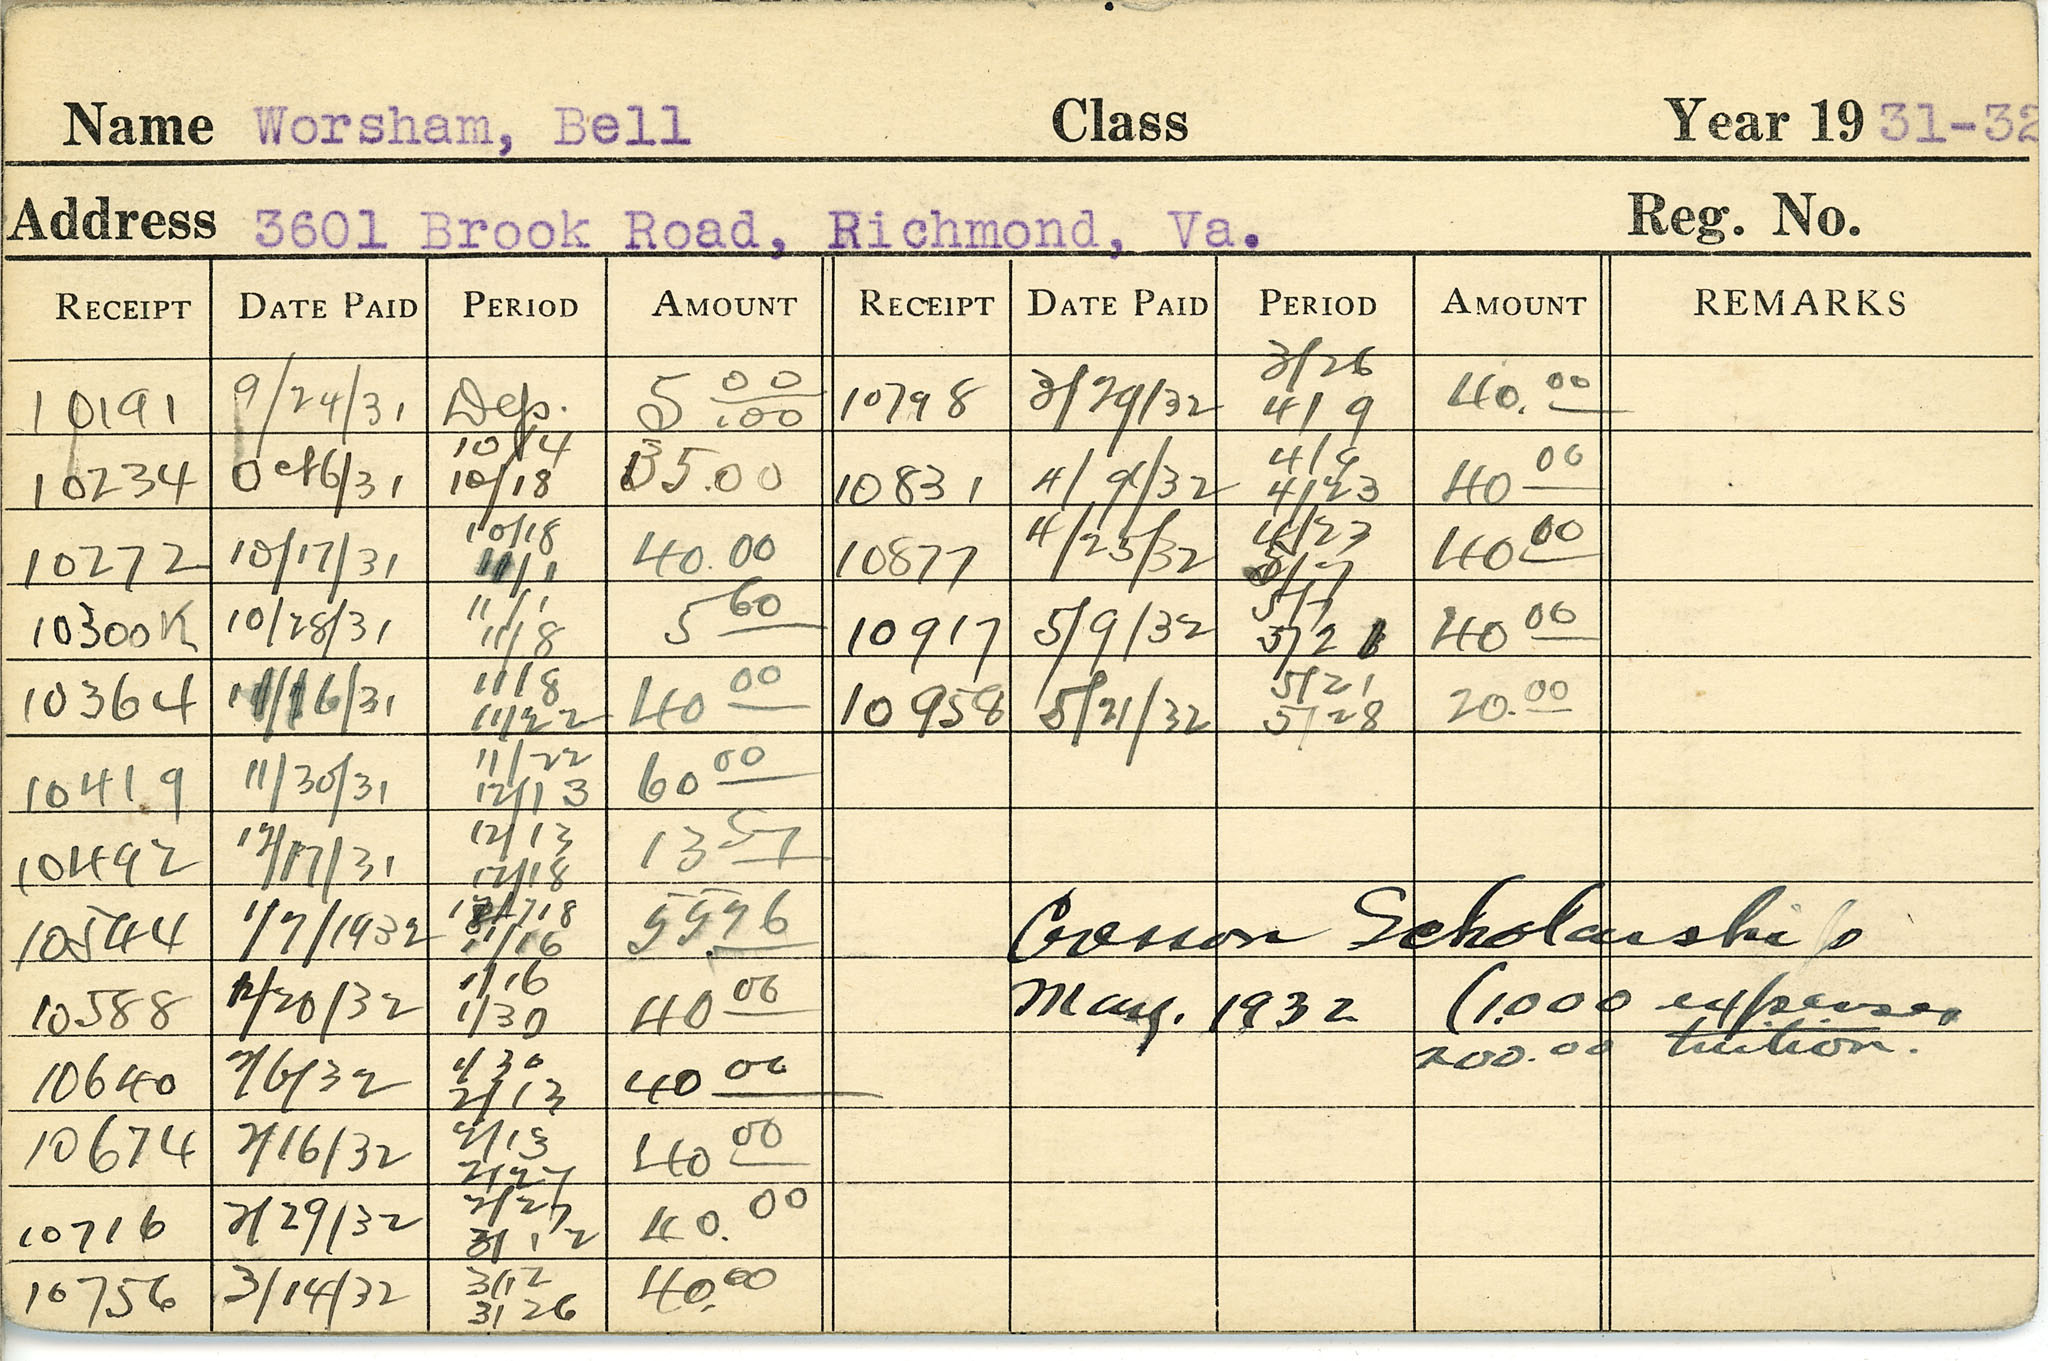 Name Worsham, Bell Class Year 19 31-32
Address 3601 Brook Road, Richmond, Va. Reg. No.
RECEIPT DATE PAID PERIOD AMOUNT RECEIPT DATE PAID PERIOD AMOUNT REMARKS
10191 9/24/31 Dep. 5 00/100 10798 3/29/32 3/26 4/9 40.00
10234 Oct 6/31 10/4 10/18 35.00 10831 4/9/32 4/9 4/23 40 00
10272 10/17/31 10/18 11/1 40.00 10877 4/25/32 4/23 5/7 40 00
10300K 10/28/31 11/1 11/8 5 60 10917 5/9/32 5/7 5/21 40 00
10364 11/16/31 11/8 11/22 40 00 10958 5/21/32 5/21 5/28 20.00
10419 11/30/31 11/22 12/13 60 00
10492 12/17/31 12/13 12/18 13 57
10544 1/7/1932 1/16 55.96 Cresson Scholarship
10588 1/20/32 1/16 1/30 40 00 May. 1932 (1.000 expenses
10640 2/6/32 1/30 2/13 40 00 200.00 tuition.
10674 2/16/32 2/13 2/27 40 00
10716 2/29/32 2/27 3/12 40.00
10756 3/14/32 3/12 3/26 40.00